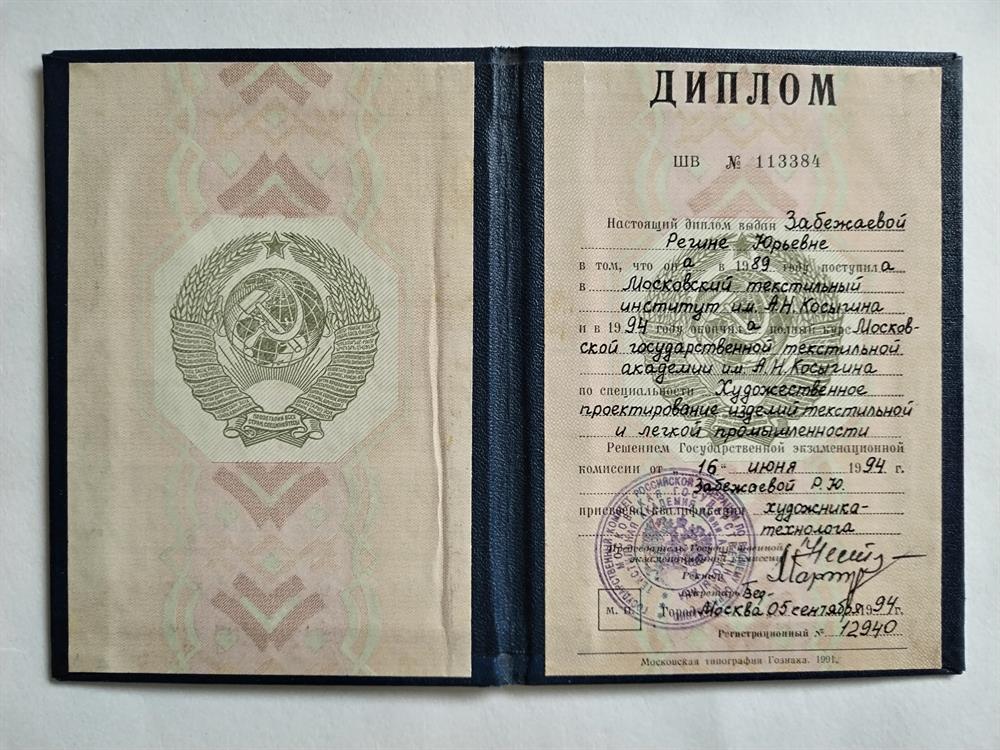 ПРОЛЕТАРИИ ВСЕХ
СТРАН, СОЕДИНЯЙТЕСЬ!
ДИПЛОМ
ШВ № 113384
Настоящий диплом выдан Забежаевой
Регине Юрьевне
в том, что она в 1989 году поступила
в Московский текстильный
институт им. А.Н. Косыгина
и в 1994 году окончила полный курс Москов-
ской государственной текстильной
академии им. А.Н. Косыгина
по специальности Художественное
проектирование изделий текстильной
и легкой промышленности
Решением Государственной экзаменационной
комиссии от „16“ июня 1994 г.
Забежаевой Р.Ю.
присвоена квалификация художника-
технолога
Председатель Государственной
экзаменационной комиссии
Ректор
Секретарь
М. П.
Город Москва 05 сентября 1994 г.
Регистрационный № 12940
Московская типография Гознака. 1991.